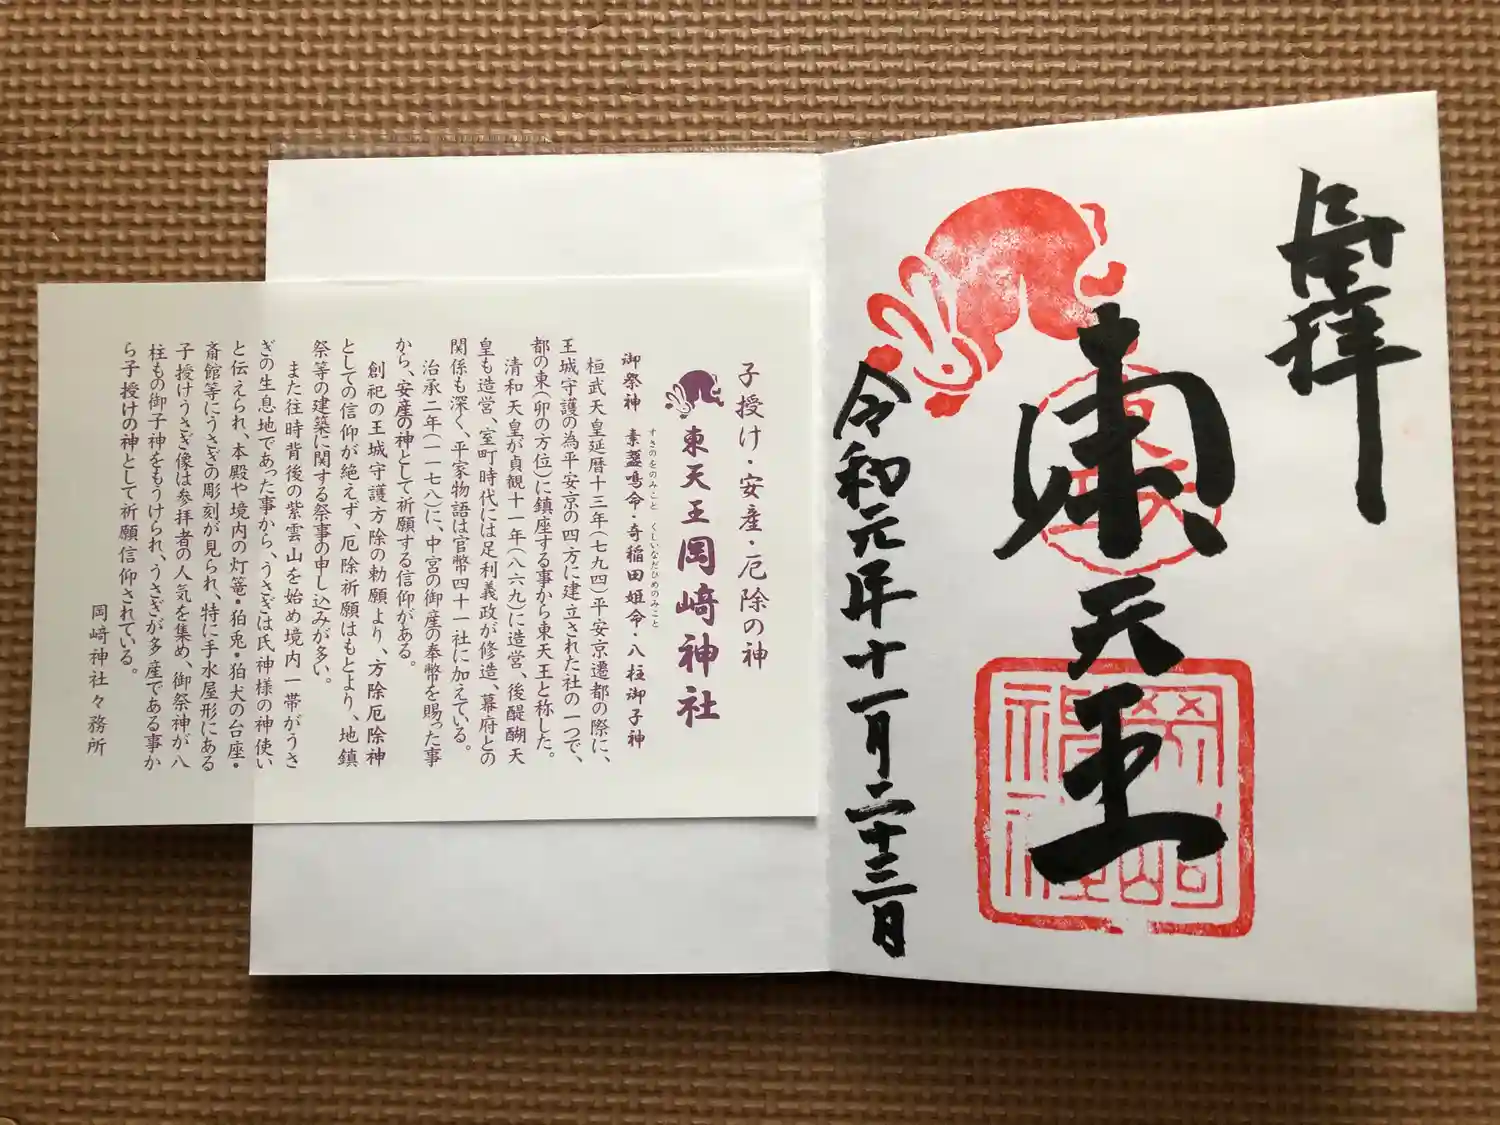 奉拝
東天王
令和元年十一月二十三日
岡崎神社
子授け・安産・厄除の神
東天王 岡﨑神社
すさのをのみこと くしいなだひめのみこと
御祭神 素盞嗚命・奇稲田姫命・八柱御子神
桓武天皇延暦十三年(七九四)平安京遷都の際に、
王城守護の為平安京の四方に建立された社の一つで、
都の東(卯の方位)に鎮座する事から東天王と称した。
清和天皇が貞観十一年(八六九)に造営、後醍醐天
皇も造営、室町時代には足利義政が修造、幕府との
関係も深く、平家物語は官幣四十一社に加えている。
治承二年(一一七八)に、中宮の御産の奉幣を賜った事
から、安産の神として祈願する信仰がある。
創祀の王城守護方除の勅願より、方除厄除神
としての信仰が絶えず、厄除祈願はもとより、地鎮
祭等の建築に関する祭事の申し込みが多い。
また往時背後の紫雲山を始め境内一帯がうさ
ぎの生息地であった事から、うさぎは氏神様の神使い
と伝えられ、本殿や境内の灯篭・狛兎・狛犬の台座・
斎館等にうさぎの彫刻が見られ、特に手水屋形にある
子授けうさぎ像は参拝者の人気を集め、御祭神が八
柱もの御子神をもうけられ、うさぎが多産である事か
ら子授けの神として祈願信仰されている。
岡﨑神社々務所